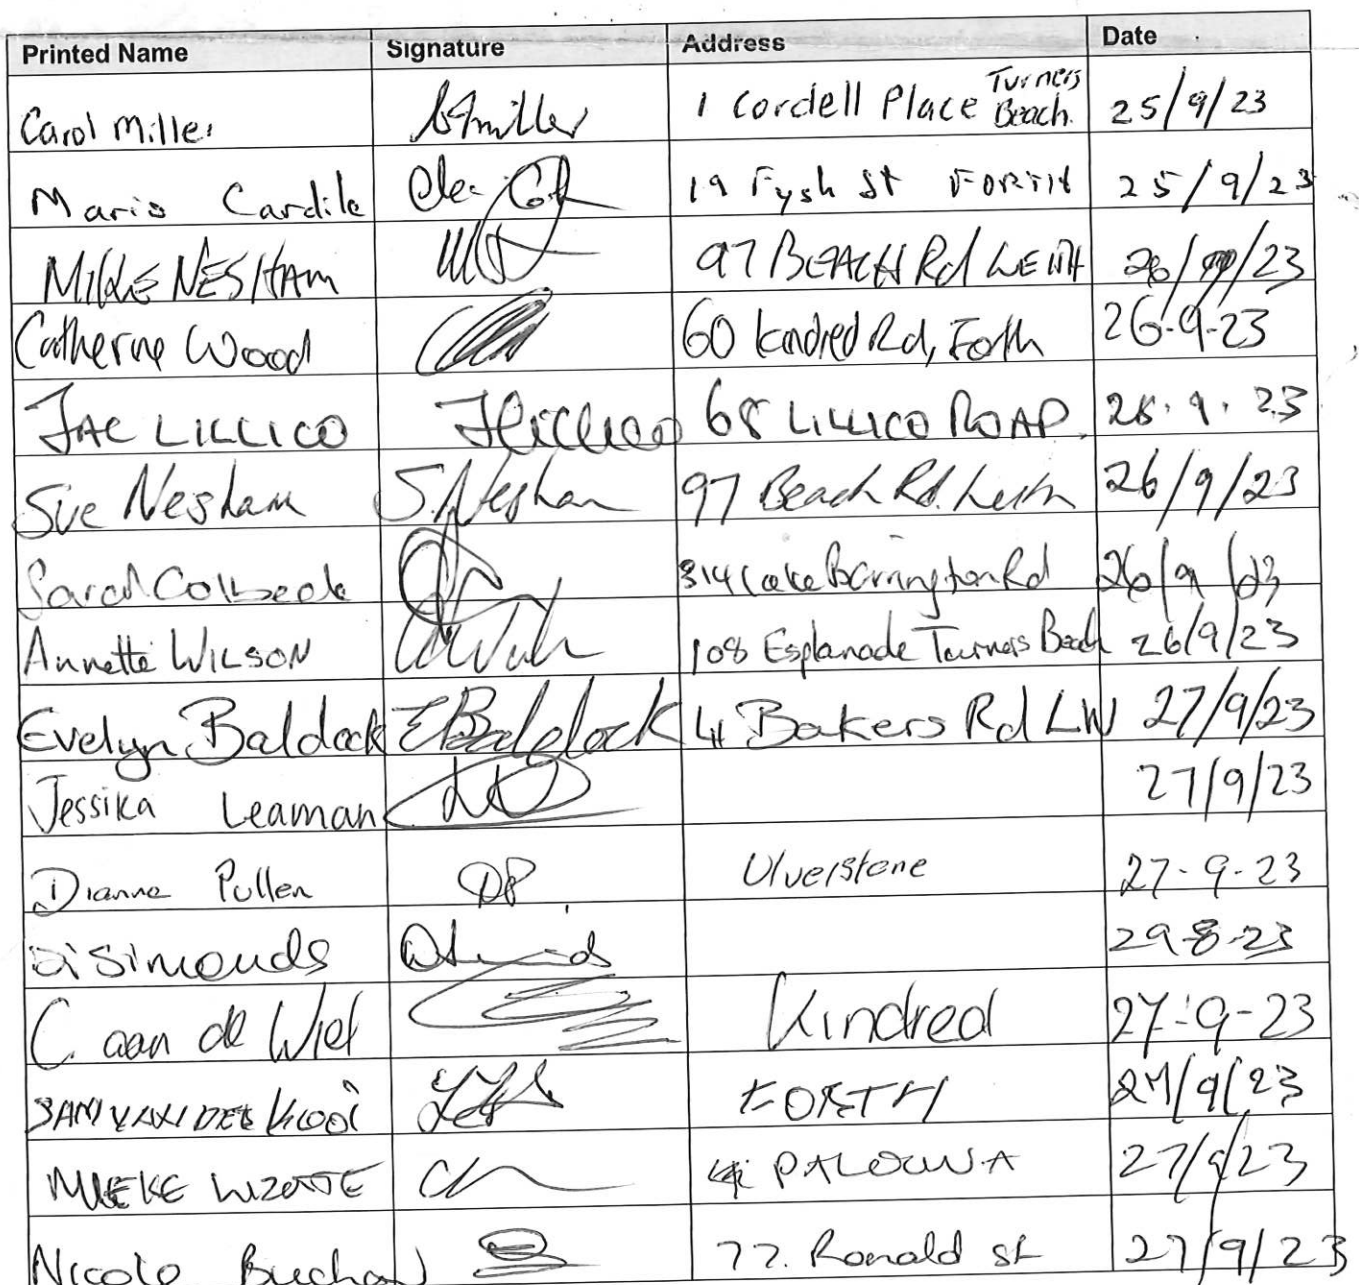 Printed Name Signature Address Date
Carol Miller 1 Cordell Place Turners Beach. 25/9/23
Mario Cardile 19 Fysh St FORTH 25/9/23
MIKE NESHAM 97 BEACH Rd LEITH 26/9/23
Catherine Wood 60 Kindred Rd, Forth 26-9-23
JAC LILLICO JLillico 68 LILLICO ROAD. 26.9.23
Sue Nesham S. Nesham 97 Beach Rd. Leith 26/9/23
Sarah Colbeck 314 Lake Barrington Rd 26/9/23
Annette WILSON 108 Esplanade Turners Beach 26/9/23
Evelyn Baldock E Baldock 4 Bakers Rd LW 27/9/23
Jessika Leaman 27/9/23
Dianne Pullen DP Ulverstone 27-9-23
Di Simonds 29-8-23
C. aan de Wiel Kindred 27-9-23
SAM VAN DER KOOI FORTH 27/9/23
MIEKE PALOONA 27/9/23
77. Ronald St 27/9/23